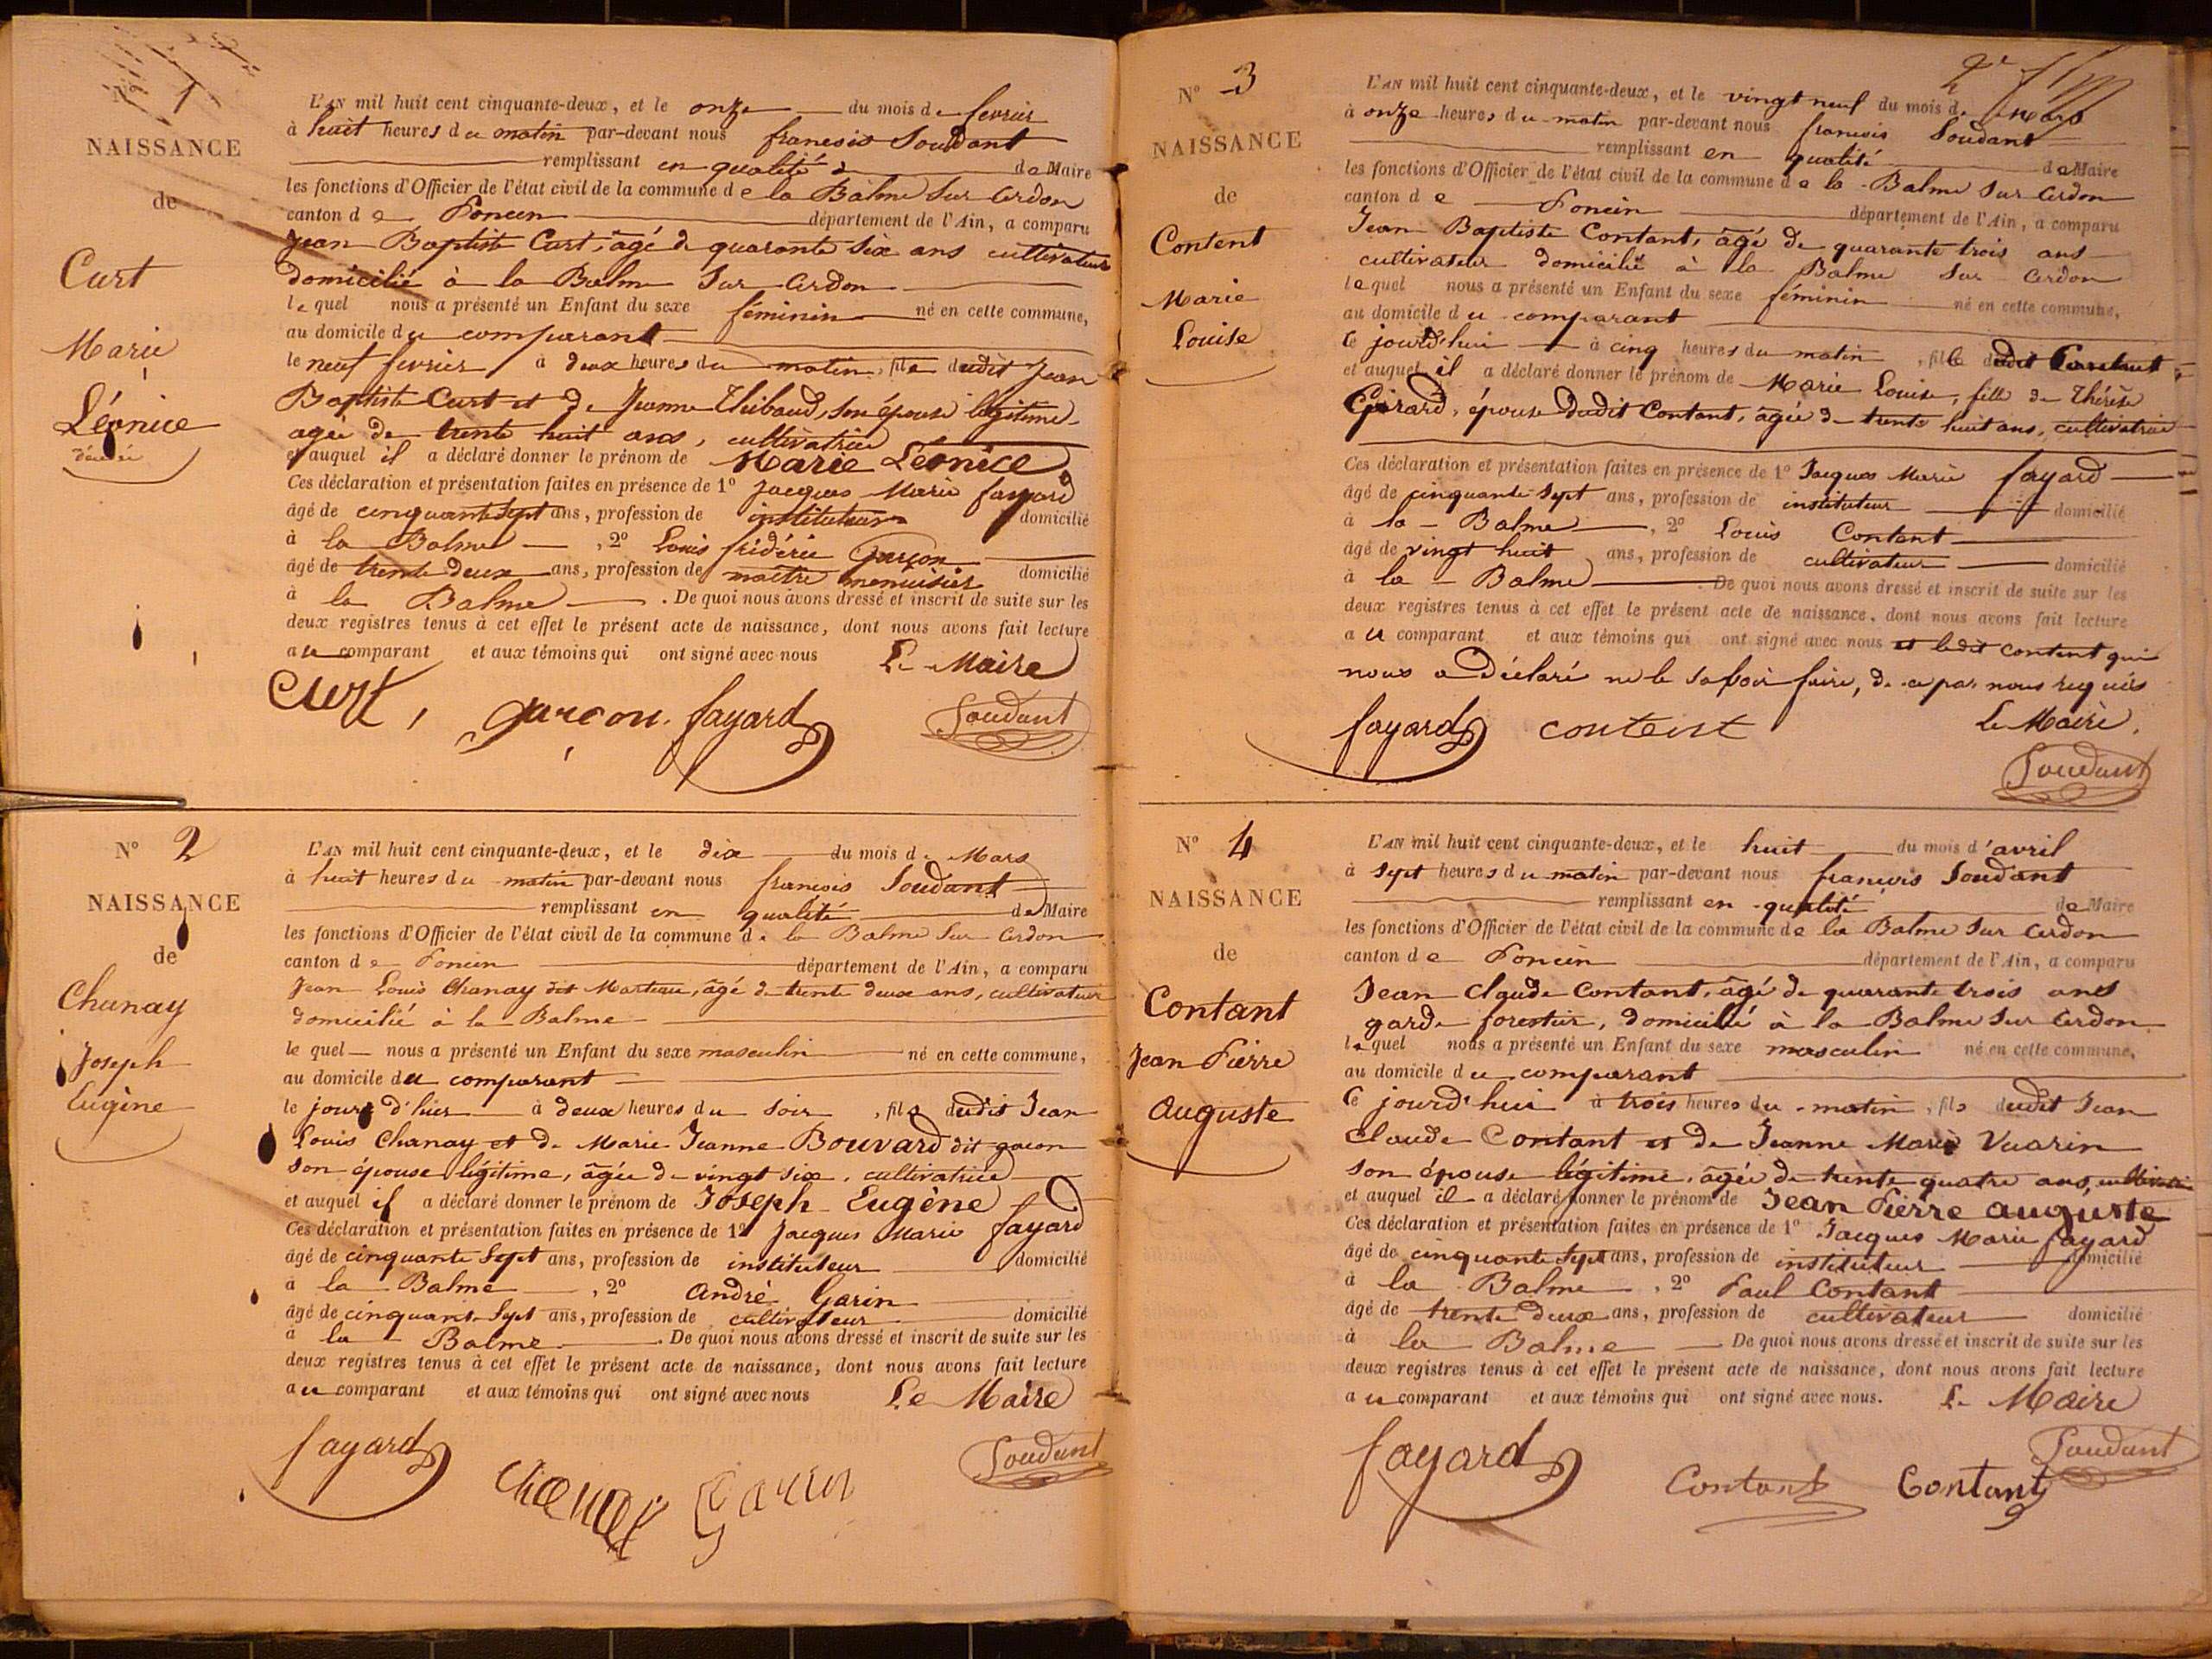 N° 1
NAISSANCE
de
Curt
Marie
Léonice
décédée
L'AN mil huit cent cinquante-deux, et le onze du mois de fevrier
à huit heures du matin par-devant nous francois Soudant
remplissant en qualité de Maire
les fonctions d'Officier de l'état civil de la commune de la Balme Sur Cerdon
canton de Poncin département de l'Ain, a comparu
Jean Baptiste Curt, âgé de quarante Six ans cultivateur
domicilié à la Balme Sur Cerdon
lequel nous a présenté un Enfant du sexe féminin né en cette commune,
au domicile du comparant
le neuf fevrier à deux heures du matin, fille dudit Jean
Baptiste Curt et de Jeanne Thibaud, son épouse légitime
agée de trente huit ans, cultivatrice
et auquel il a déclaré donner le prénom de Marie Léonice
Ces déclaration et présentation faites en présence de 1° Jacques Marie fayard
âgé de cinquante Sept ans, profession de instituteur domicilié
à la Balme , 2° Louis frédéric Garçon
âgé de trente deux ans, profession de maitre menuisier domicilié
à la Balme . De quoi nous avons dressé et inscrit de suite sur les
deux registres tenus à cet effet le présent acte de naissance, dont nous avons fait lecture
au comparant et aux témoins qui ont signé avec nous Le Maire
Curt, garcon. fayard Soudant
N° 2
NAISSANCE
de
Chanay
Joseph
Eugène
L'AN mil huit cent cinquante-deux, et le dix du mois de Mars
à huit heures du matin par-devant nous francois Soudant
remplissant en qualité de Maire
les fonctions d'Officier de l'état civil de la commune de la Balme Sur Cerdon
canton de Poncin département de l'Ain, a comparu
Jean Louis Chanay dit Marteau, âgé de trente deux ans, cultivateur
domicilié à la Balme
lequel nous a présenté un Enfant du sexe masculin né en cette commune,
au domicile du comparant
le jour d'hier à deux heures du soir , fils dudit Jean
Louis Chanay et de Marie Jeanne Bouvard dit
son épouse légitime, âgée de vingt six, cultivatrice
et auquel il a déclaré donner le prénom de Joseph Eugène
Ces déclaration et présentation faites en présence de 1° Jacques Marie fayard
âgé de cinquante Sept ans, profession de instituteur domicilié
à la Balme , 2° André Garin
âgé de cinquante Sept ans, profession de cultivateur domicilié
à la Balme . De quoi nous avons dressé et inscrit de suite sur les
deux registres tenus à cet effet le présent acte de naissance, dont nous avons fait lecture
au comparant et aux témoins qui ont signé avec nous Le Maire
fayard Chanay Garin Soudant
N° 3
NAISSANCE
de
Content
Marie
Louise
L'AN mil huit cent cinquante-deux, et le vingt neuf du mois de mars
à onze heures du matin par-devant nous francois Soudant
remplissant en qualité de Maire
les fonctions d'Officier de l'état civil de la commune de la Balme Sur Cerdon
canton de Poncin département de l'Ain, a comparu
Jean Baptiste Contant, âgé de quarante trois ans
cultivateur domicilié à la Balme Sur Cerdon
lequel nous a présenté un Enfant du sexe féminin né en cette commune,
au domicile du comparant
Ce jourd'hui à cinq heures du matin , fille dudit Contant
et auquel il a déclaré donner le prénom de Marie Louise, fille de Thérèse
Girard, épouse dudit Contant, âgée de trente huit ans, cultivatrice
Ces déclaration et présentation faites en présence de 1° Jacques Marie fayard
âgé de cinquante Sept ans, profession de instituteur domicilié
à la Balme , 2° Louis Contant
âgé de vingt huit ans, profession de cultivateur domicilié
à la Balme . De quoi nous avons dressé et inscrit de suite sur les
deux registres tenus à cet effet le présent acte de naissance, dont nous avons fait lecture
au comparant et aux témoins qui ont signé avec nous et ledit content qui
nous a déclaré ne le Savoir faire, de ce par nous requis
Le Maire.
fayard content
Soudant
N° 4
NAISSANCE
de
Contant
Jean Pierre
Auguste
L'AN mil huit cent cinquante-deux, et le huit du mois d'avril
à Sept heures du matin par-devant nous francois Soudant
remplissant en qualité de Maire
les fonctions d'Officier de l'état civil de la commune de la Balme Sur Cerdon
canton de Poncin département de l'Ain, a comparu
Jean Claude Contant, âgé de quarante trois ans
garde forestier, domicilié à la Balme Sur Cerdon
lequel nous a présenté un Enfant du sexe masculin né en cette commune,
au domicile du comparant
Ce jourd'hui à trois heures du matin, fils dudit Jean
Claude Contant et de Jeanne Marie Vuarin
son épouse légitime, âgée de trente quatre ans, cultivatrice
et auquel il a déclaré donner le prénom de Jean Pierre auguste
Ces déclaration et présentation faites en présence de 1° Jacques Marie fayard
âgé de cinquante Sept ans, profession de instituteur domicilié
à la Balme , 2° Paul Contant
âgé de trente deux ans, profession de cultivateur domicilié
à la Balme De quoi nous avons dressé et inscrit de suite sur les
deux registres tenus à cet effet le présent acte de naissance, dont nous avons fait lecture
au comparant et aux témoins qui ont signé avec nous. Le Maire
fayard Contant Contant Soudant